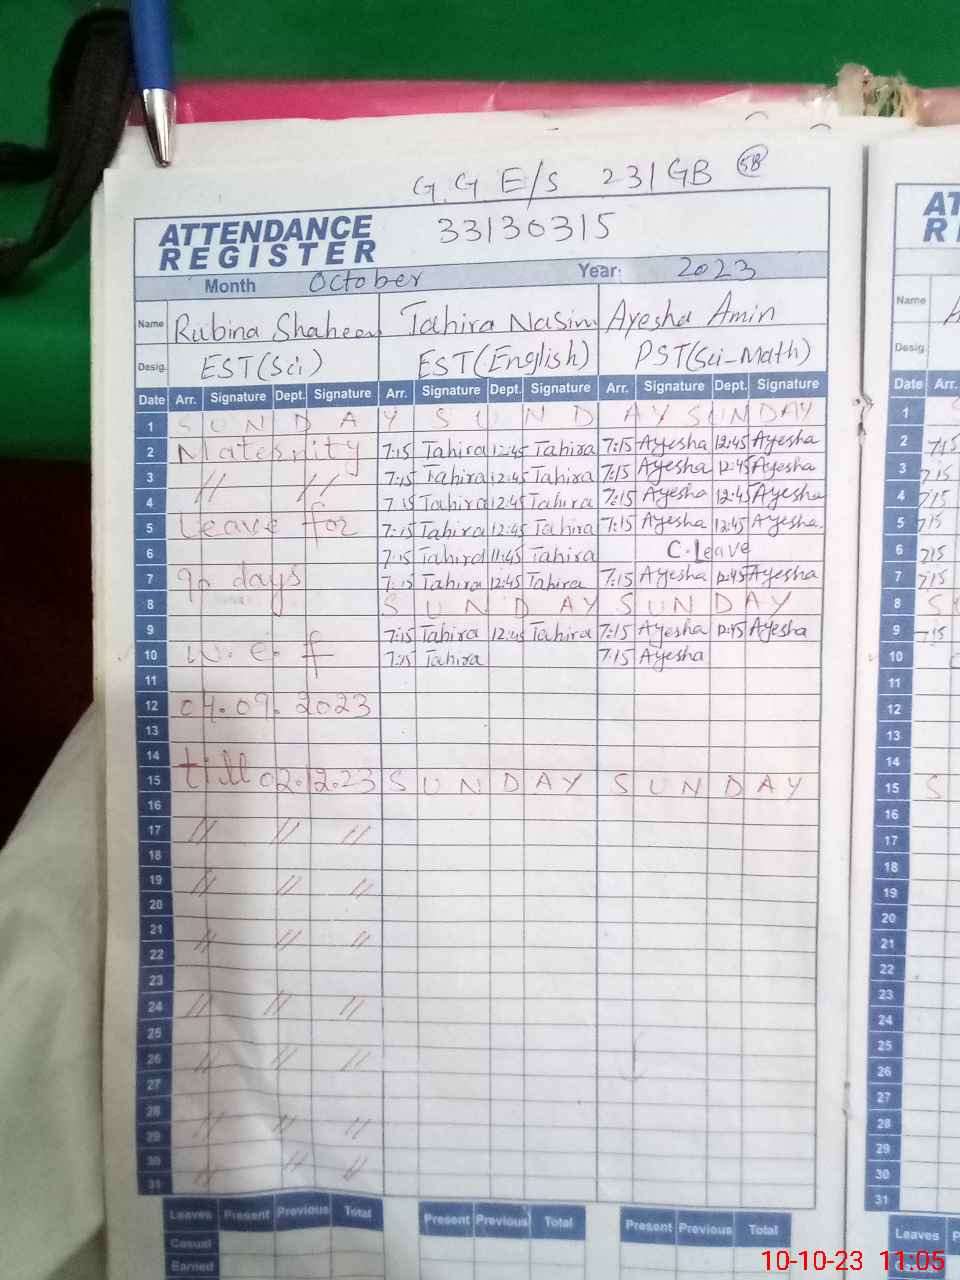 G.G E/S 231GB 5B
ATTENDANCE REGISTER 33130315
Month October Year: 2023
Name Rubina Shaheen Tahira Nasim Ayesha Amin
Desig. EST(Sci) EST(English) PST(Sci-Math)
Date Arr. Signature Dept. Signature Arr. Signature Dept. Signature Arr. Signature Dept. Signature
1 SUNDAY SUNDAY SUNDAY
2 Maternity 7:15 Tahira 12:45 Tahira 7:15 Ayesha 12:45 Ayesha
3 // // 7:15 Tahira 12:45 Tahira 7:15 Ayesha 12:45 Ayesha
4 7:15 Tahira 12:45 Tahira 7:15 Ayesha 12:45 Ayesha
5 Leave for 7:15 Tahira 12:45 Tahira 7:15 Ayesha 12:45 Ayesha
6 7:15 Tahira 11:45 Tahira C.Leave
7 90 days 7:15 Tahira 12:45 Tahira 7:15 Ayesha 12:45 Ayesha
8 SUNDAY SUNDAY
9 7:15 Tahira 12:45 Tahira 7:15 Ayesha 12:45 Ayesha
10 w.e.f 7:15 Tahira 7:15 Ayesha
11
12 04.09.2023
13
14
15 till 02.12.23 SUNDAY SUNDAY
16
17 // // //
18
19 // // //
20
21 // // //
22
23
24 // // //
25
26 // // //
27
28
29 // // //
30 // //
31 //
Leaves Present Previous Total Present Previous Total Present Previous Total
Casual
Earned
Name
Desig.
Date Arr.
1
2 7:15
3 7:15
4 7:15
5 7:15
6 7:15
7 7:15
8 S
9 7:15
10
11
12
13
14
15 S
16
17
18
19
20
21
22
23
24
25
26
27
28
29
30
31
Leaves
Casual
10-10-23 11:05